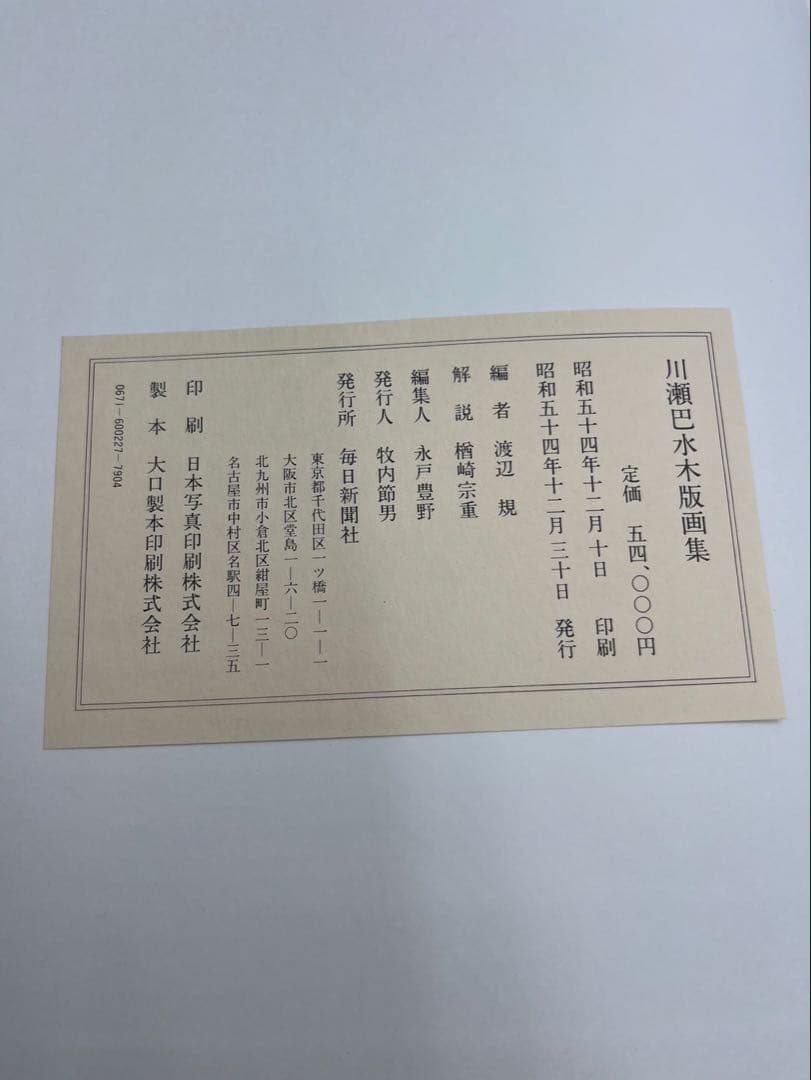 川瀬巴水木版画集
定価 五四、〇〇〇円
昭和五十四年十二月 十日 印刷
昭和五十四年十二月三十日 発行
編者 渡辺規
解説 楢崎宗重
編集人 永戸豊野
発行人 牧内節男
発行所 毎日新聞社
東京都千代田区一ッ橋一―一―一
大阪市北区堂島一―六―二〇
北九州市小倉北区紺屋町一三―一
名古屋市中村区名駅四―七―三五
印刷 日本写真印刷株式会社
製本 大口製本印刷株式会社
0671―600227―7904